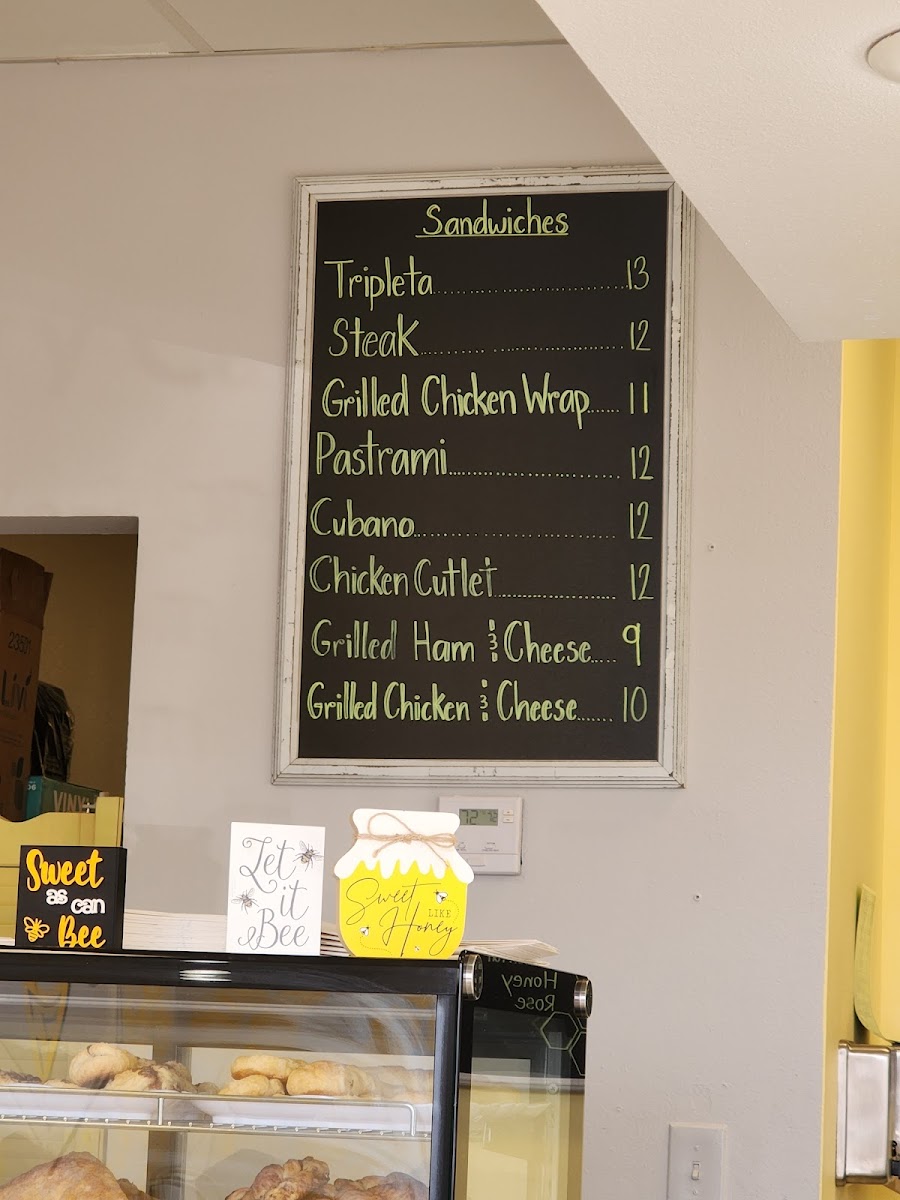 Sandwiches
Tripleta..............................13
Steak.............................12
Grilled Chicken Wrap......11
Pastrami.........................12
Cubano............................12
Chicken Cutlet...................12
Grilled Ham & Cheese.....9
Grilled Chicken & Cheese.......10
23501
Livi
VINYL
72
Sweet
as can
Bee
Let
it
Bee
Sweet
LIKE
Honey
Honey
Rose